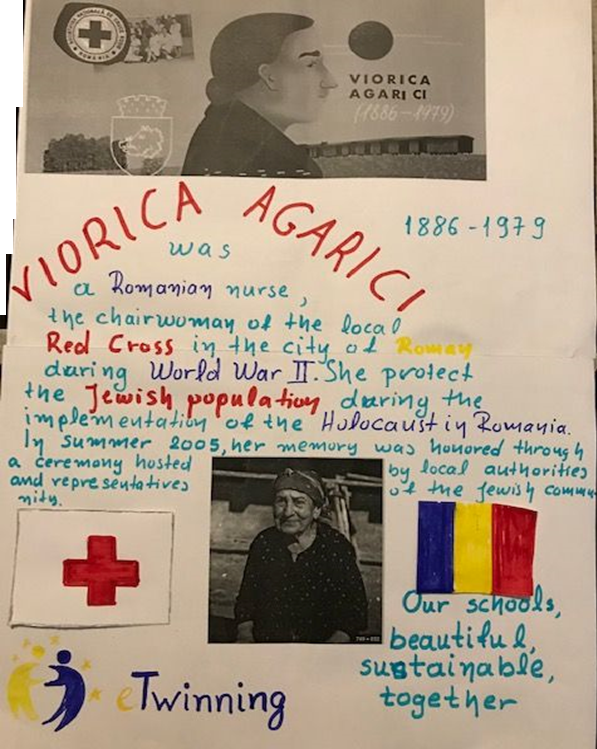 VIORICA
AGARICI
(1886-1979)
VIORICA AGARICI
1886-1979
was
a Romanian nurse,
the chairwoman of the local
Red Cross in the city of Roman
during World War II. She protect
the Jewish population during the
implementation of the Holocaust in Romania.
In summer 2005, her memory was honored through
a ceremony hosted by local authorities
and representatives of the Jewish commu-
nity.
Our schools,
beautiful,
sustainable,
together
eTwinning